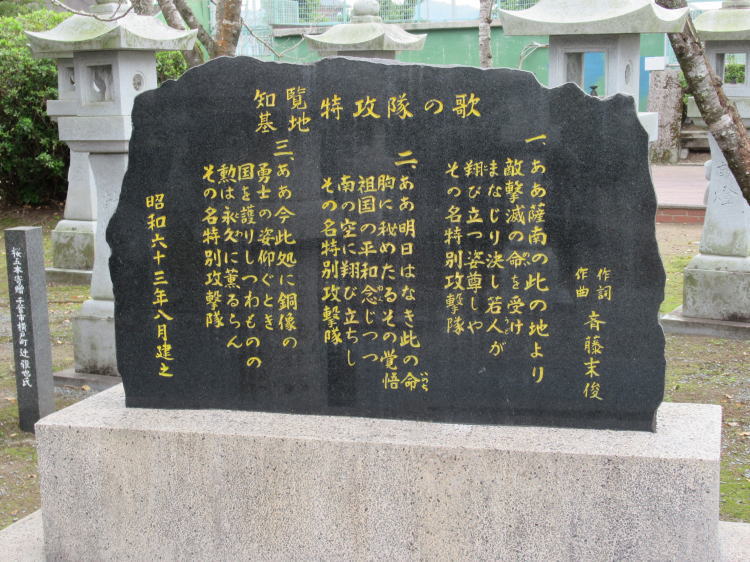 知覧基地 特攻隊の歌
作詞 作曲 斉藤末俊
一、ああ薩南の此の地より
敵撃滅の命を受け
まなじり決し若人が
翔び立つ姿尊しや
その名特別攻撃隊
二、ああ明日はなき此の命
胸に秘めたるその覚悟
祖国の平和念じつつ
南の空に翔び立ちし
その名特別攻撃隊
三、ああ今此処に銅像の
勇士の姿仰ぐとき
国を護りしつわものの
勲は永久に薫るらん
その名特別攻撃隊
昭和六十三年八月建之
桜五本寄贈 千葉市横戸町